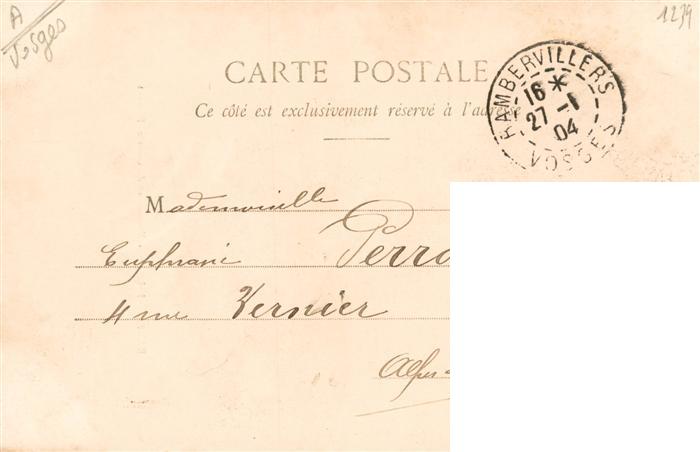 A
Vosges
1239
CARTE POSTALE
Ce côté est exclusivement réservé à l'adresse
RAMBERVILLERS
16 *
27 -1
04
VOSGES
Mademoiselle
Euphrasie Perro
4 rue Vernier
Alpes